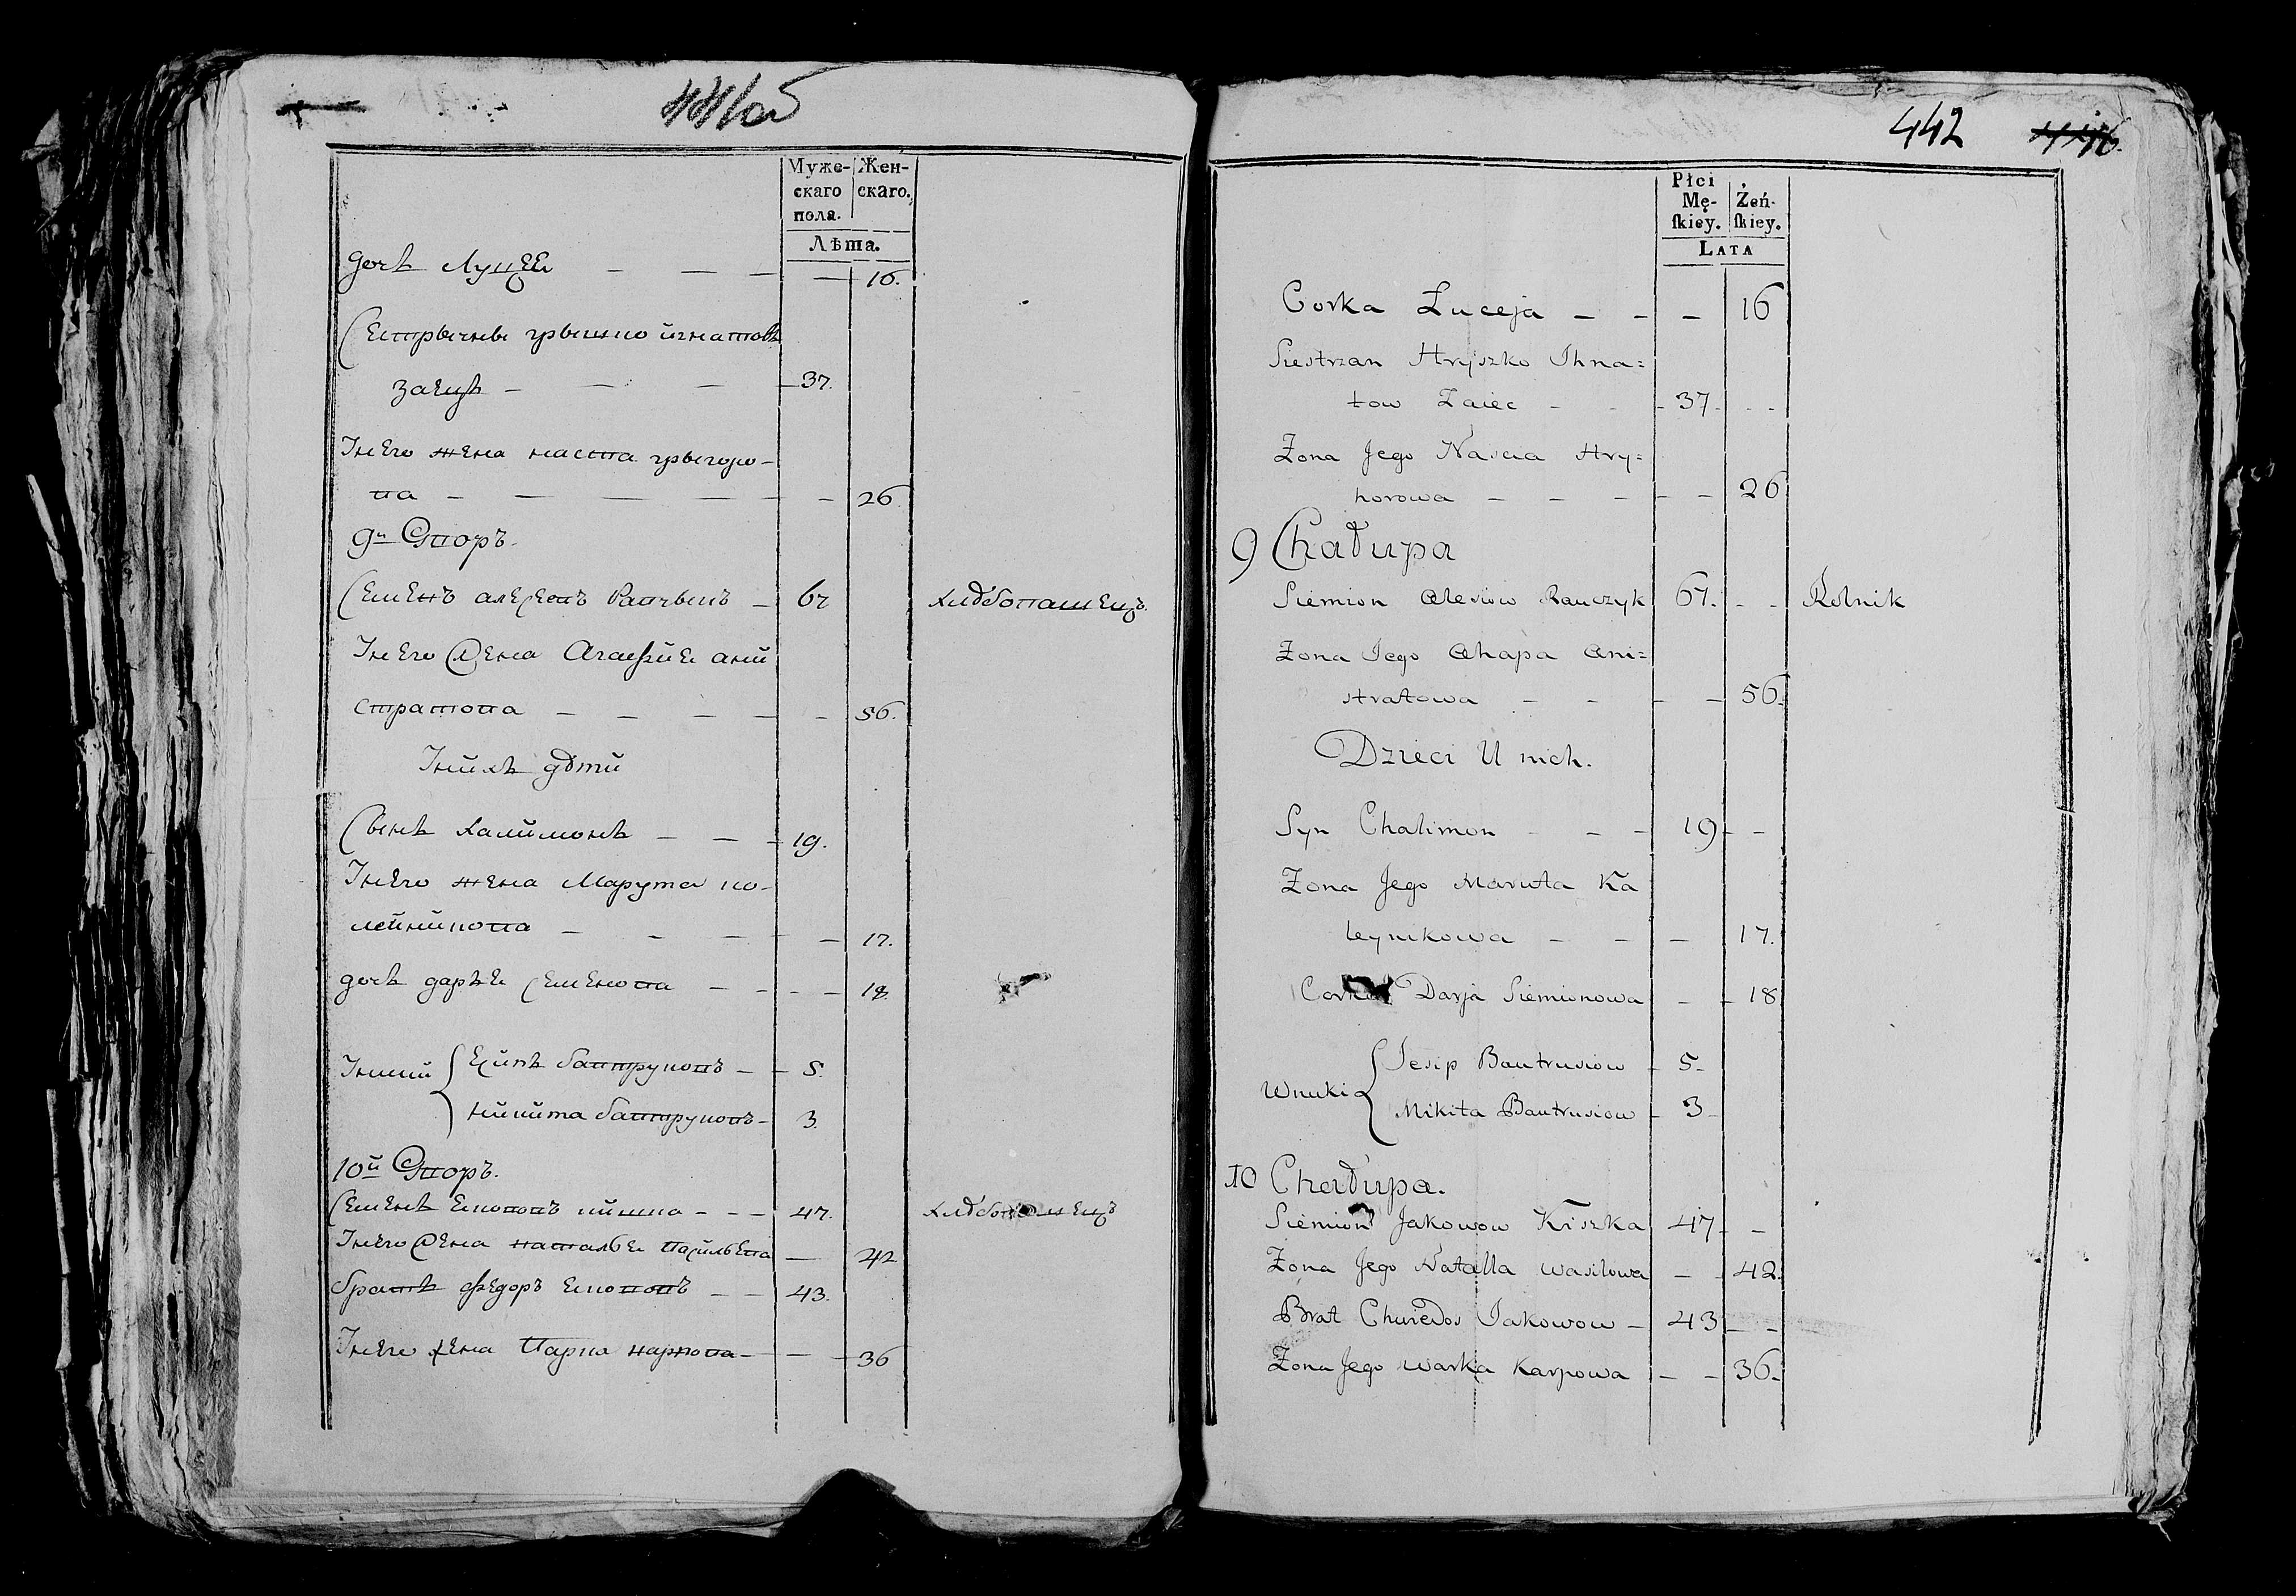 441об
Муже-
скаго
пола.
Жен-
скаго.
Лѣта.
дочь Луцея — — — — 16.
Сестрычны грышко йгнатовъ
заецъ — — — — 37.
Унего жена настa грыгоро-
ва — — — — — 26
9й Дворъ.
Семенъ алексевъ Равчыкъ — 67 хлѣбопашецъ.
Унего жена Агафйе анй
стратова — — — — — 56.
Унйхъ дѣтй
Сынъ халймонъ — — — 19.
Унего жена Марута ко-
лейнйкова — — — — — 17.
дочь дарья Семенова — — — — 18.
Унукй Есйпъ бавтруковъ — — 5.
нйкйта бавтруковъ — 3.
10й Дворъ.
Семенъ Екововъ кйшка — — — 47. хлѣбопашецъ
Унего жена наталье васйльева — 42
братъ федоръ Екововъ — — 43.
Унего жена Варка карпова — — — 36
442
Płci
Mę-
ſkiey.
Żeń-
ſkiey.
LATA
Corka Łuceja — — — 16
Siestrzan Hryszko Ihna=
tow Zaiec - - - 37 - - -
Zona Jego Nascia Hry=
horowa — — — — — 26
9 Chałupa
Siemion Alesiow Rauczyk 67. - - Rolnik
Zona Jego Ahapa Ani=
stratowa — — — — 56.
Dzieci U nich.
Syn Chalimon — — — 19 — —
Zona Jego Maruta Ka
leynikowa — — — 17.
Corka Darja Siemionowa — — 18
Wnuki Jesip Bautrusiow — 5 -
Mikita Bautrusiow — 3 -
10 Chałupa.
Siemion Jakowow Kiszka 47 - —
Zona Jego Natalla Wasilowa — - 42.
Brat Chwiedos Jakowow — 43 — —
Zona Jego Warka Karpowa — — 36 -